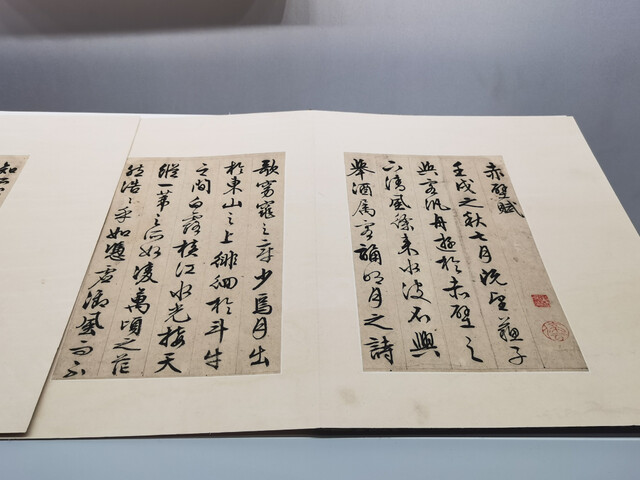 赤壁賦
壬戌之秋七月既望蘇子
與客汎舟遊於赤壁之
下清風徐來水波不興
舉酒属客誦明月之詩
歌窈窕之章少焉月出
於東山之上徘徊於斗牛
之間白露横江水光接天
縱一葦之所如凌萬頃之茫
然浩〻乎如憑虚御風而不
知